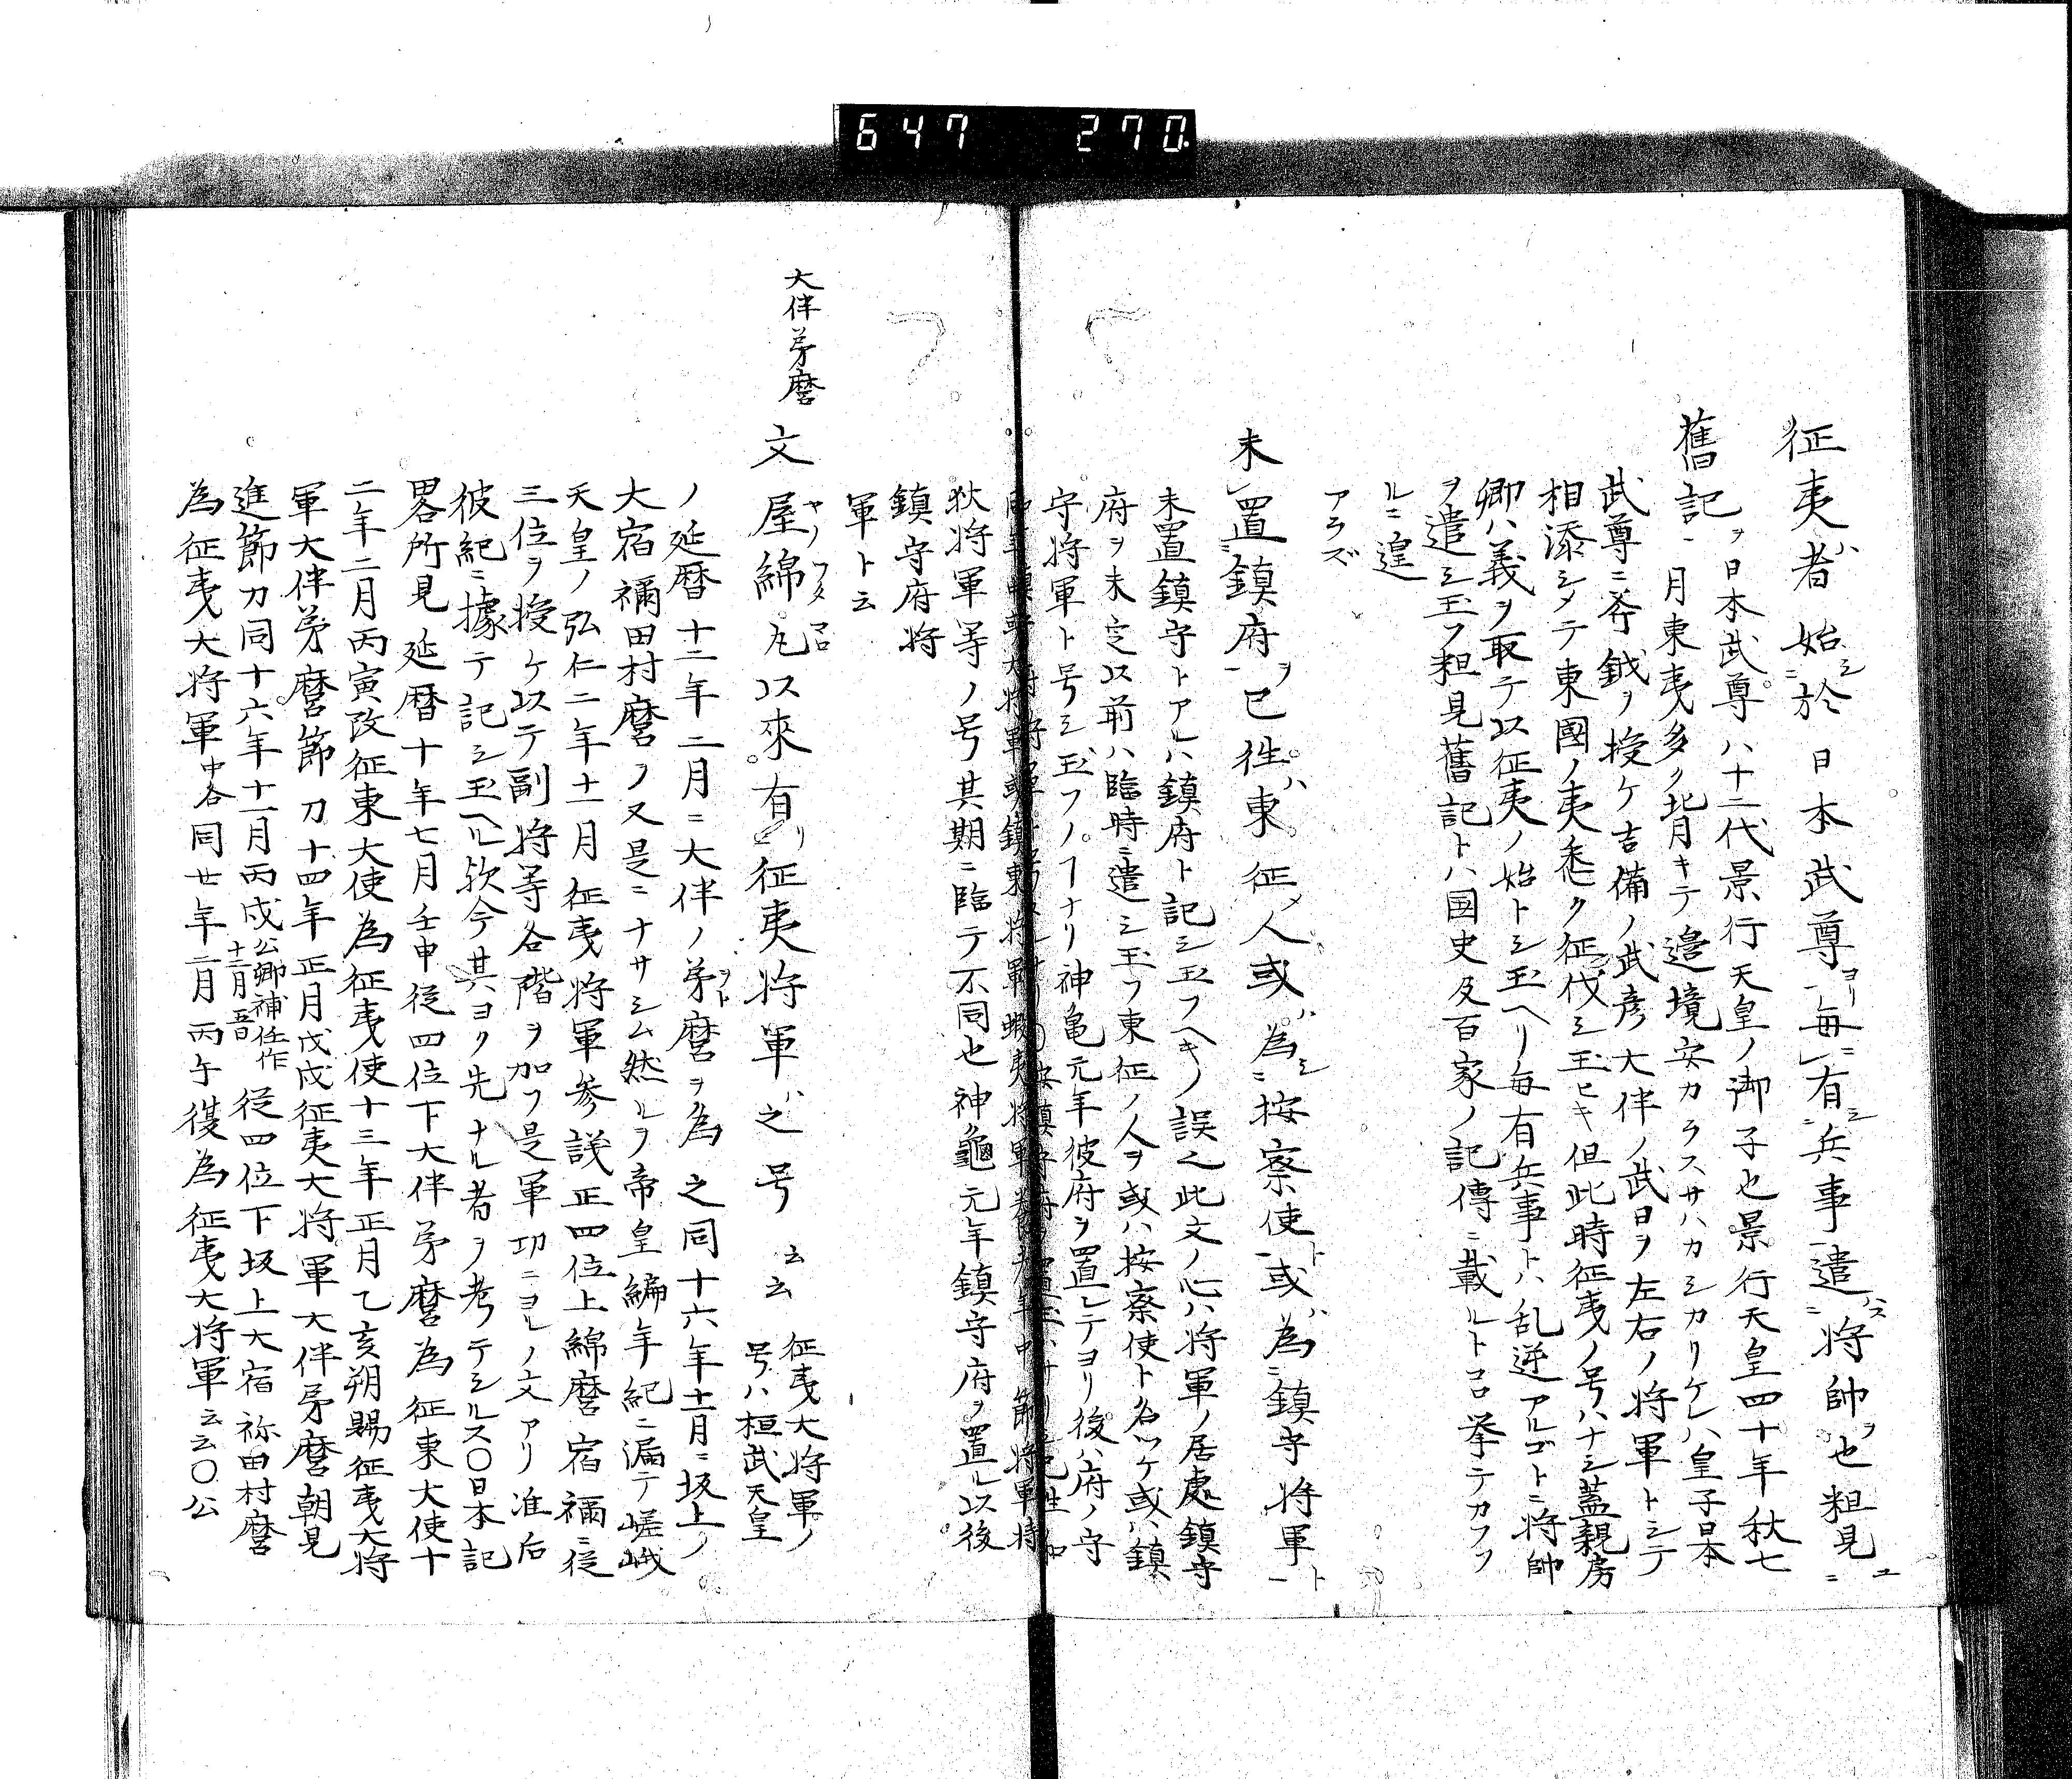 647 270
征夷者始於日本武尊毎有兵事遣将帥也粗見
舊記 日本武尊ハ十二代景行天皇ノ御子也景行天皇四十年秋七
月東夷多ク叛キテ邉境安カラスサハカシカリケレハ皇子日本
武尊ニ斧鉞ヲ授ケ吉備ノ武彦大伴ノ武日ヲ左右ノ将軍トシテ
相添シメテ東國ノ夷悉ク征伐シ玉ヒキ但此時征夷ノ号ハナシ蓋親房
卿ハ義ヲ取テ以征夷ノ始トシ玉ヘリ毎有兵事トハ乱逆アルゴトニ将帥
ヲ遣シ玉フ粗見舊記トハ国史及百家ノ記傳ニ載ルトコロ挙テカソフ
ルニ遑
アラズ
未置鎮府已往東征人或為按察使或為鎮守将軍
未置鎮守トアルハ鎮府ト記シ玉フヘキノ誤也此文ノ心ハ将軍ノ居處鎮守
府ヲ未定以前ハ臨時ニ遣シ玉フ東征ノ人ヲ或ハ按察使ト名ツケ或ハ鎮
守将軍ト号シ玉フノヿナリ神亀元年彼府ヲ置レテヨリ後ハ府ノ守
狄将軍等ノ号其期ニ臨テ不同也神龜元年鎮守府ヲ置レ以後
鎮守府将
軍ト云
大伴苐麿
文屋綿丸以來有征夷将軍之号云云 征夷大将軍ノ
号ハ桓武天皇
ノ延暦十二年二月ニ大伴ノ苐麿ヲ為之同十六年十一月ニ坂上ノ
大宿禰田村麿ヲ又是ニナサシム然ルヲ帝皇編年紀ニ漏テ嵯峨
天皇ノ弘仁二年十一月征夷将軍参議正四位上綿麿宿禰ニ従
三位ヲ授ケ以テ副将等各階ヲ加フ是軍功ニヨレノ文アリ准后
彼紀ニ據テ記シ玉ヘル歟今其ヨク先ナル者ヲ考テシルス〇日本記
畧所見延暦十年七月壬申従四位下大伴苐麿為征東大使十
二年二月丙寅改征東大使為征夷使十三年正月乙亥朔賜征夷大将
軍大伴苐麿節刀十四年正月戊戌征夷大将軍大伴苐麿朝見
進節刀同十六年十一月丙戌公卿補任作十一月五日従四位下坂上大宿祢田村麿
為征夷大将軍中各同廿年二月丙午復為征夷大将軍云云〇公